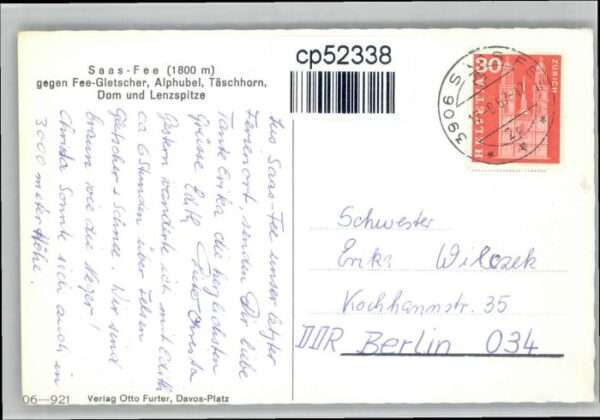 Saas-Fee (1800 m)
gegen Fee-Gletscher, Alphubel, Täschhorn,
Dom und Lenzspitze
cp52338
30
HELVETIA
ZÜRICH
3906 SAAS-FEE
Aus Saas-Fee unser letzter
Ferienort, senden Dir liebe
Tante Erika die herzlichsten
Grüsse Edith Christa
Gestern wanderte ich mit Edith
ca 6 Stunden über Felsen
Gletscher + Schnee. Wir sind
braun wie die Neger!
Christa sonnte sich auch in
3000 meter Höhe.
Schwester
Erika Wilczek
Kochhannstr. 35
DDR Berlin 034
06—921 Verlag Otto Furter, Davos-Platz